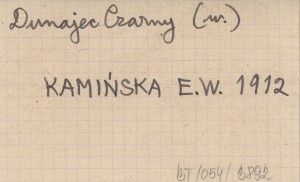 Dunajec Czarny (w.)
KAMIŃSKA E.W. 1912
BT/054/2892